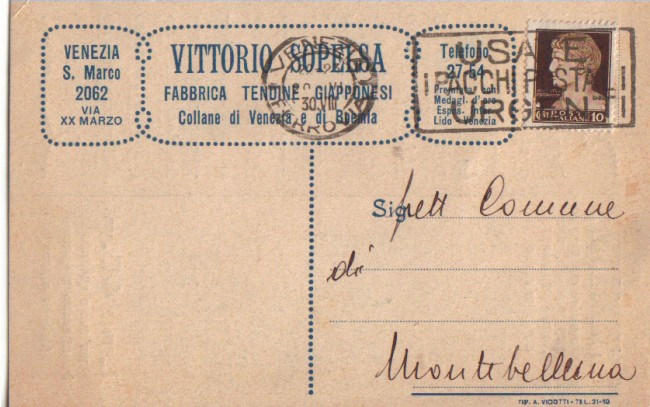 VENEZIA
S. Marco
2062
VIA
XX MARZO
VITTORIO SOPELSA
FABBRICA TENDINE GIAPPONESI
Collane di Venezia e di Boemia
Telefono
27-64
Premiata con
Medagl. d'oro
Espos. Intern.
Lido Venezia
VENEZIA
30.VIII
FERROVIA
USATE
I PACCHI POSTALI
URGENTI
POSTE ITALIANE 10
Sig
Spett Comune
di
Montebelluna
TIP. A. VIDOTTI - TEL. 21-10